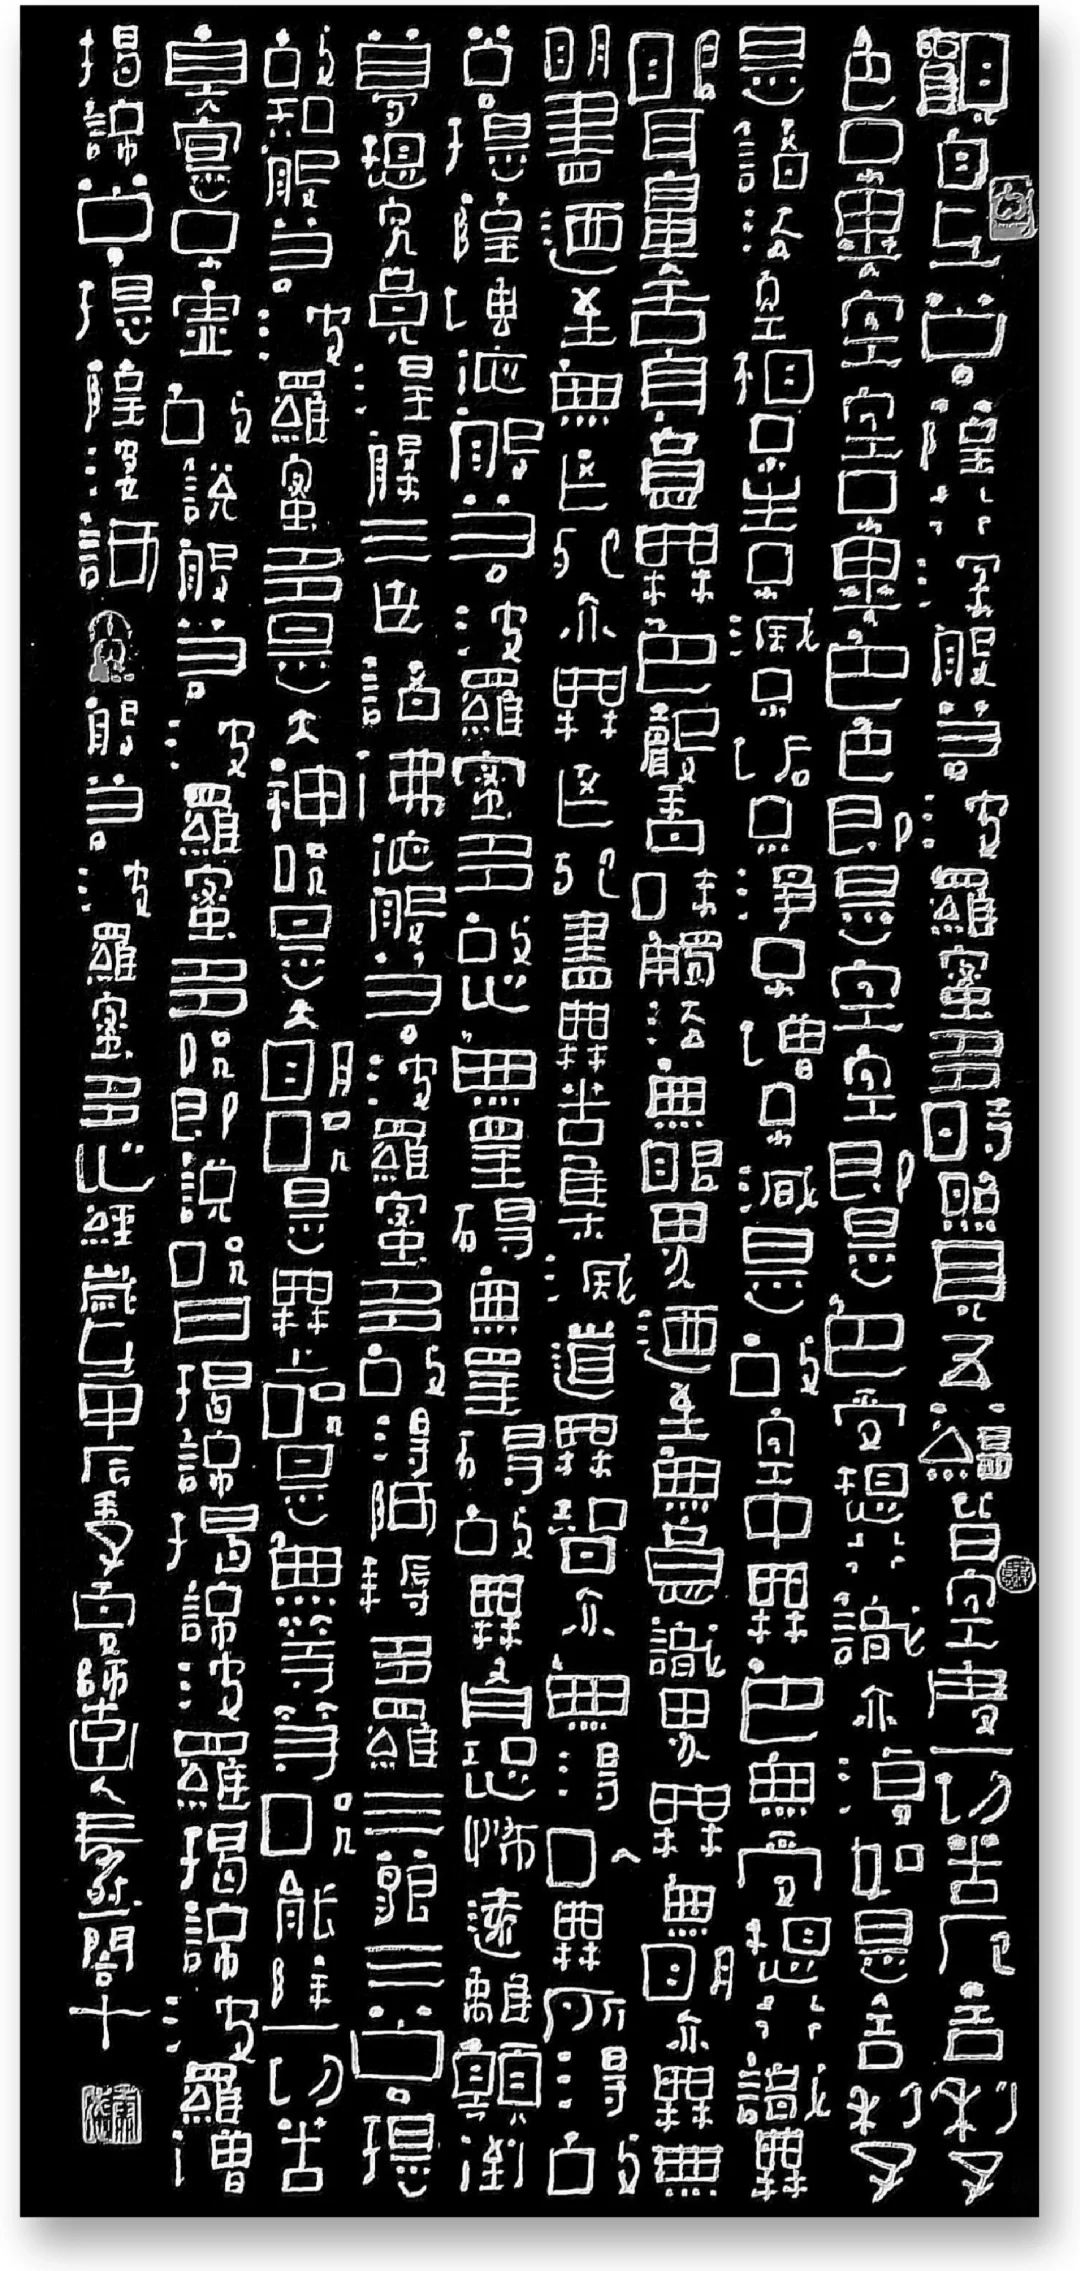 觀自在菩薩行深般若波羅蜜多時照見五蘊皆空度一切苦厄舍利子
色不異空空不異色色即是空空即是色受想行識亦復如是舍利子
是諸法空相不生不滅不垢不淨不增不減是故空中無色無受想行識無
眼耳鼻舌身意無色聲香味觸法無眼界迺至無意識界無無明亦無無
明盡迺至無老死亦無老死盡無苦集滅道無智亦無得以無所得故
菩提薩埵依般若波羅蜜多故心無罣礙無罣礙故無有恐怖遠離顛倒
夢想究竟涅槃三世諸佛依般若波羅蜜多故得阿耨多羅三藐三菩提
故知般若波羅蜜多是大神咒是大明咒是無上咒是無等等咒能除一切苦
真實不虛故說般若波羅蜜多咒即說咒曰揭諦揭諦波羅揭諦波羅僧
揭諦菩提薩婆訶般若波羅蜜多心經歲在甲辰季夏